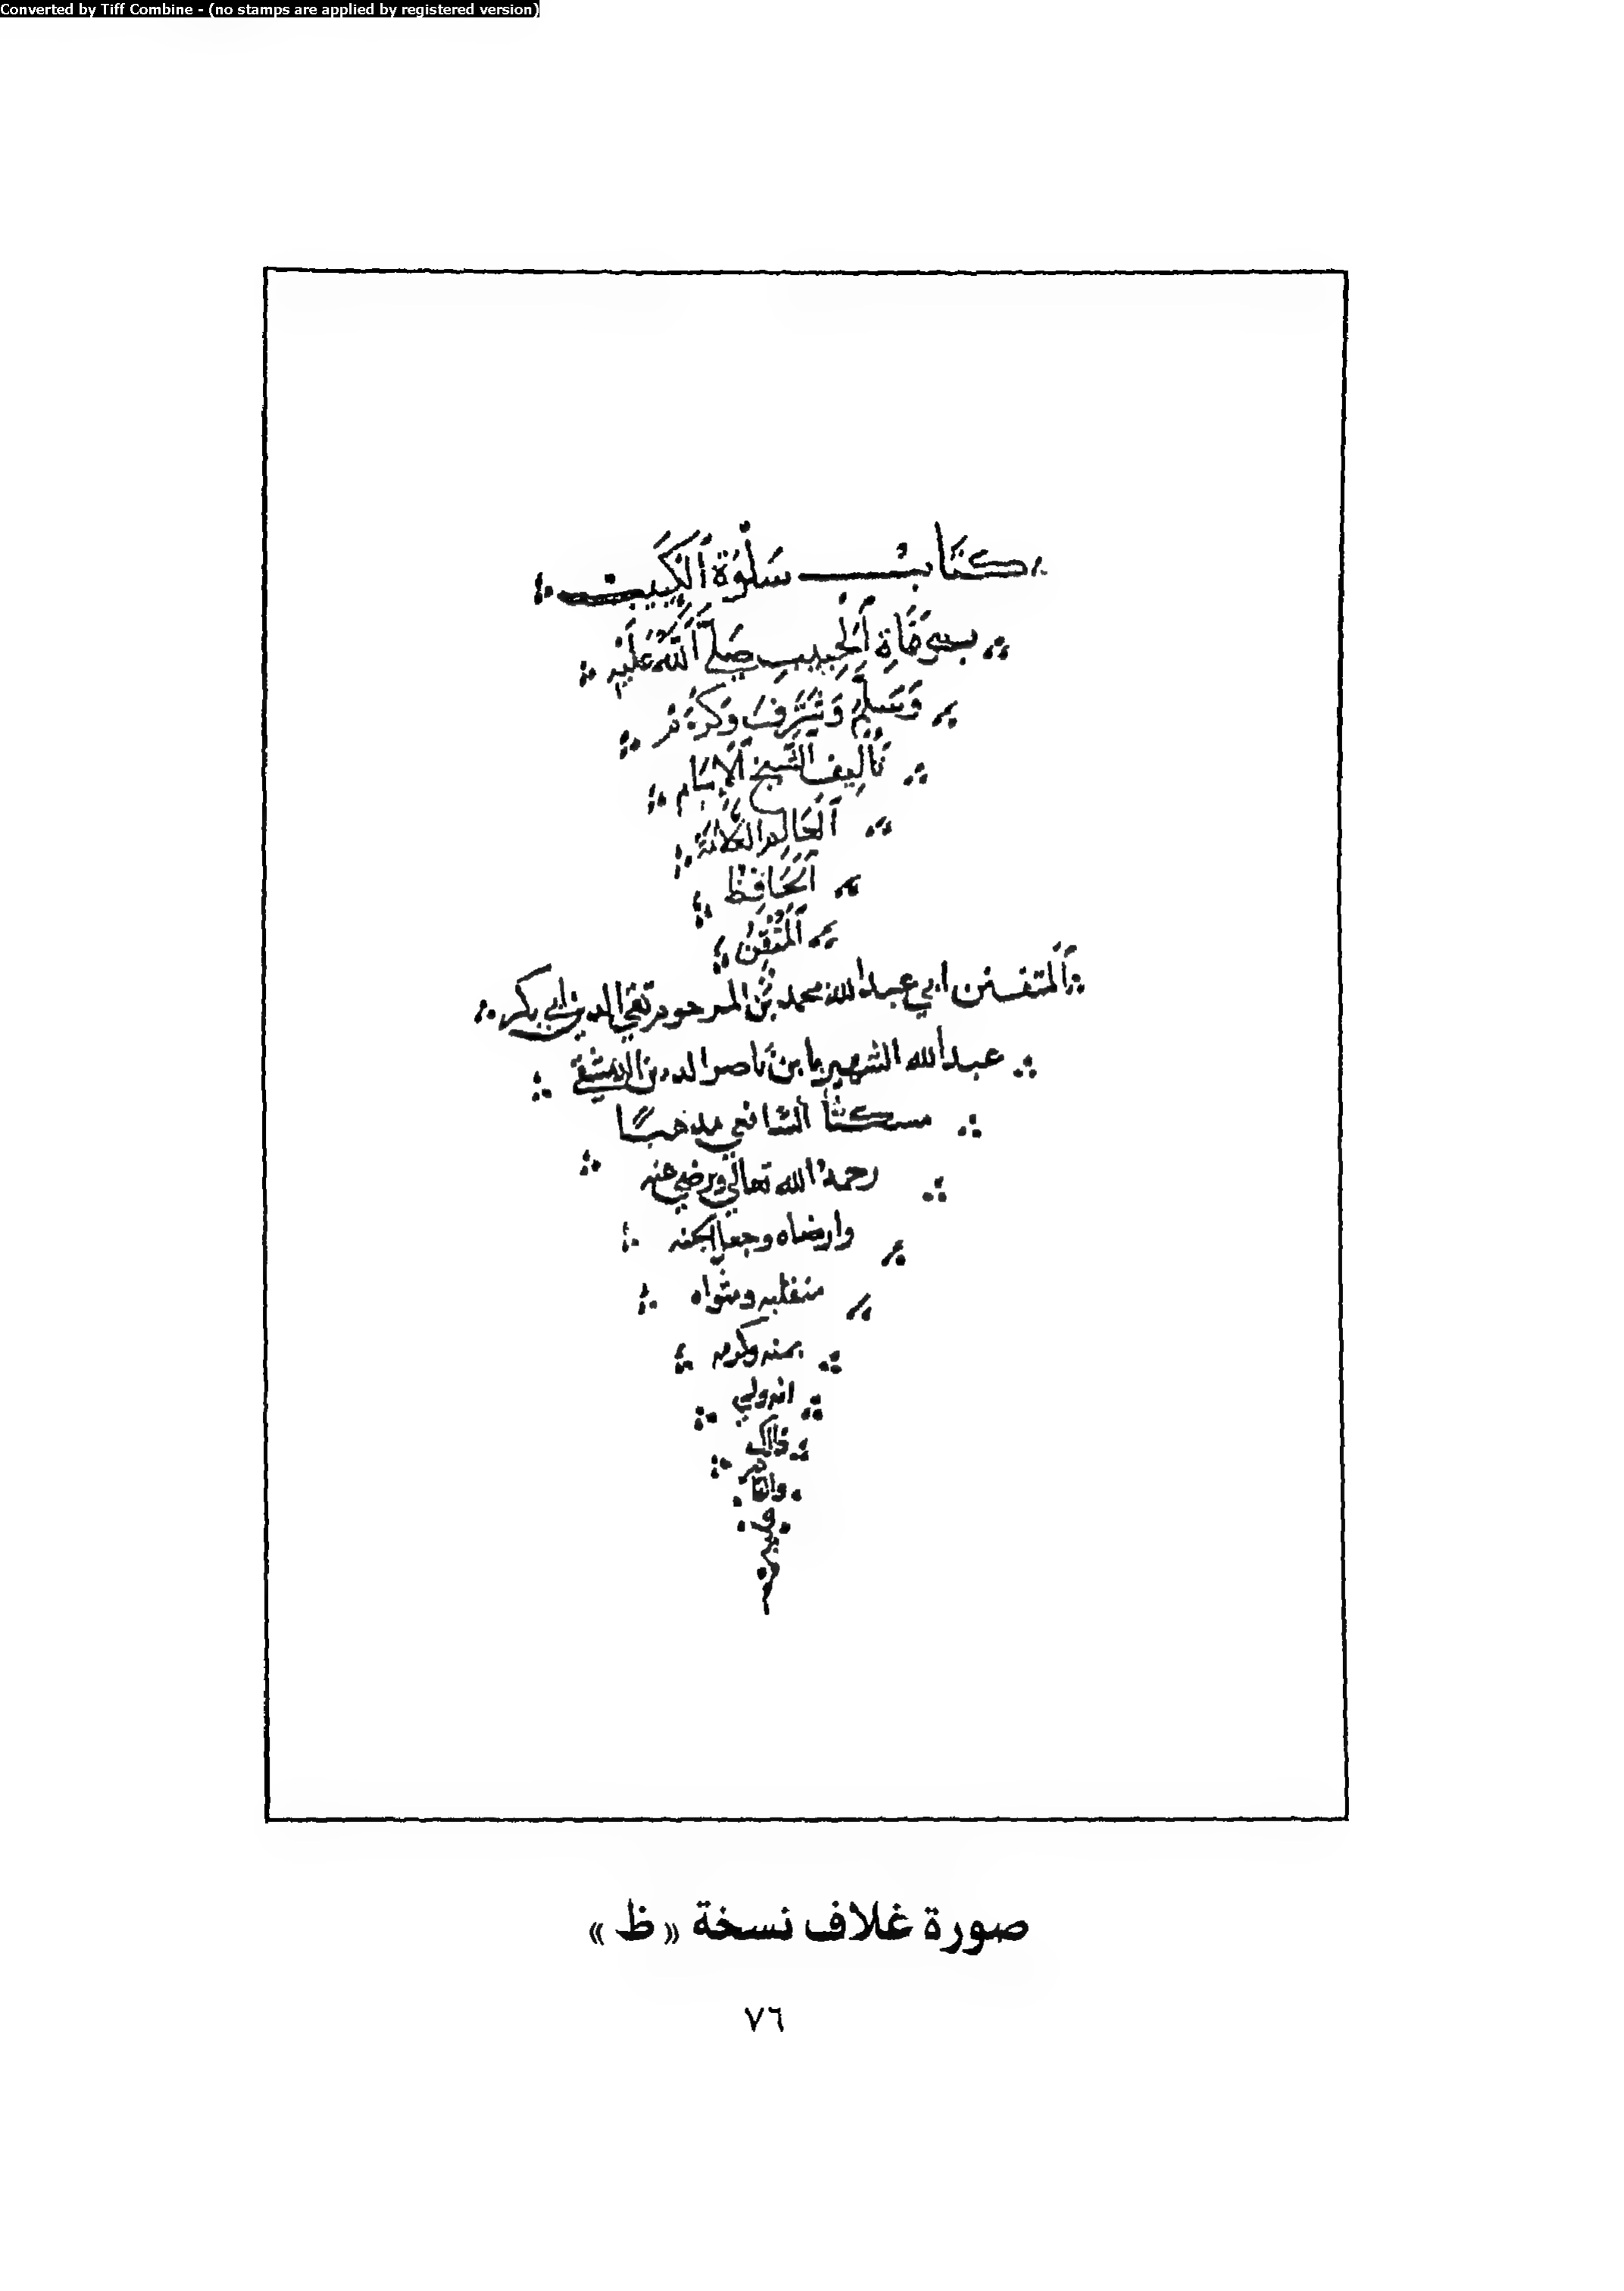 Converted by Tiff Combine - (no stamps are applied by registered version)
كتاب سلوة الكئيب
بوفاة الحبيب صلى الله عليه
وسلم وشرف وكرم
تأليف الشيخ الإمام
العالم العلامة
الحافظ
المتقن
المتفنن ابي عبد الله محمد بن المرحوم تقي الدين ابي بكر
عبد الله الشهير بابن ناصر الدين الدمشقي
مسكنا الشافعي مذهبا
رحمه الله تعالى ورضي عنه
وارضاه وجعل الجنة
منقلبه ومثواه
بمنه وكرمه
انه ولي
ذلك
والقادر
صورة غلاف نسخة « ظ »
٧٦